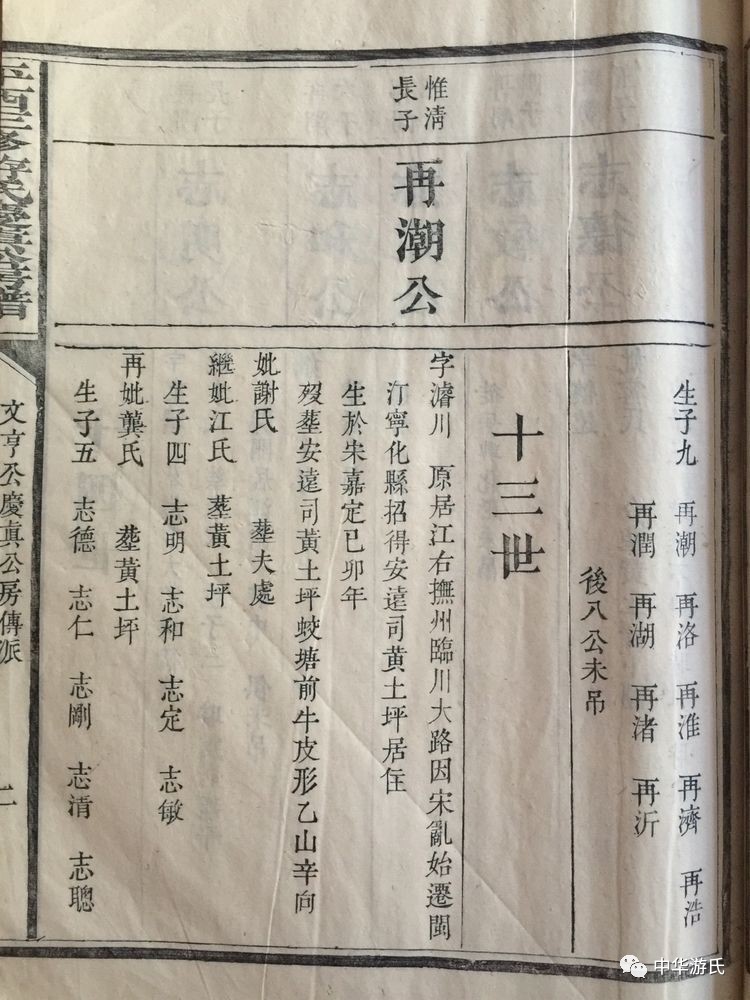 生子九 再潮 再洛 再淮 再濟 再浩
再潤 再湖 再渚 再沂
後八公未吊
十三世
惟清
長子
再潮公
字濬川 原居江右撫州臨川大路因宋亂始遷閩
汀寧化縣招得安遠司黃土坪居住
生於宋嘉定己卯年
歿塟安遠司黃土坪蛟塘前牛皮形乙山辛向
妣謝氏 塟夫處
繼妣江氏 塟黃土坪
生子四 志明 志和 志定 志敏
再妣龔氏 塟黃土坪
生子五 志德 志仁 志剛 志清 志聰
文亨公慶真公房傳派
二
中华游氏